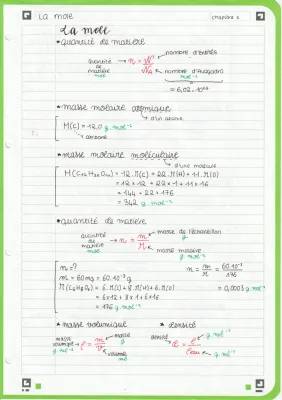 La mole chapitre 2
La mole
• quantité de matière
quantité de matière mol → n = N/NA
nombre d'entités
nombre d'Avogadro mol⁻¹
= 6,02.10²³
• masse molaire atomique
d'un atome
M(C) = 12,0 g.mol⁻¹
carbone
• masse molaire moléculaire
d'une molécule
M(C₁₂H₂₂O₁₁) = 12.M(C) + 22.M(H) + 11.M(O)
= 12 x 12 + 22 x 1 + 11 x 16
= 144 + 22 + 176
= 342 g.mol⁻¹
• quantité de matière
quantité de matière mol → n = m/M
masse de l'échantillon g
masse molaire g.mol⁻¹
n = ?
m = 60mg = 60.10⁻³ g
M(C₆H₈O₆) = 6.M(C) + 8.M(H) + 6.M(O)
= 6 x 12 + 8 x 1 + 6 x 16
= 176 g.mol⁻¹
n = m/M = 60.10⁻³/176
= 0,0003 g.mol⁻¹
• masse volumique • densité
masse volumique → ρ = m/V
masse g
volume
densité → d = ρ/ρeau